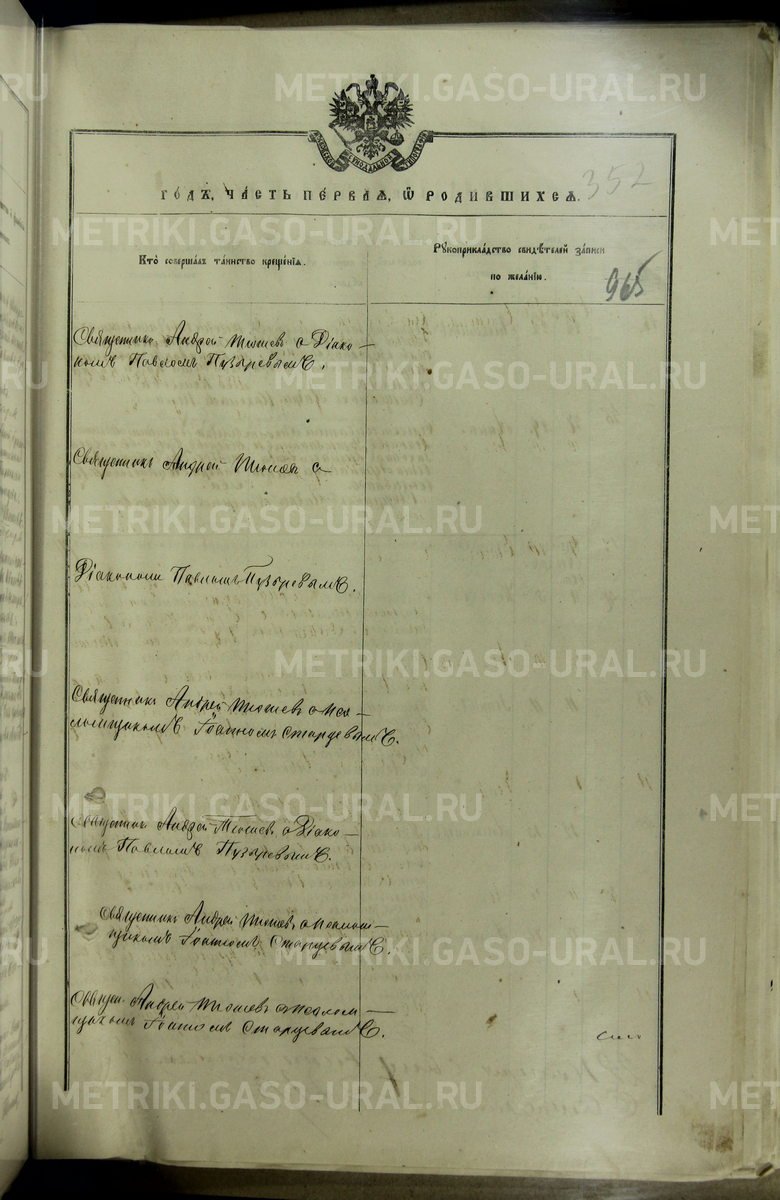 METRIKI.GASO-URAL.RU
МОСКОВСКОЙ СѴНОДАЛЬНОЙ ТИПОГРАФІИ
ГО́ДЪ, ЧА́СТЬ ПЕ́РВАѦ, Ѡ РОДИ́ВШИХСѦ.
352
Кто̀ соверша́лъ та́инство креще́нїѧ.
Рꙋкоприкла́дство свидѣ́телей за́писи
по жела́нїю.
965
Священникъ Андрей Тюшевъ с Діако-
номъ Павломъ Пузыревымъ.
Священникъ Андрей Тюшевъ с
Діакономъ Павломъ Пузыревымъ.
Священникъ Андрей Тюшевъ с Пса-
ломщикомъ Іоанномъ Старцевымъ.
Священникъ Андрей Тюшевъ с Діако-
номъ Павломъ Пузыревымъ.
Священникъ Андрей Тюшевъ с Псалом-
щикомъ Іоанномъ Старцевымъ.
Священ. Андрей Тюшевъ с Псалом-
щикомъ Іоанномъ Старцевымъ.